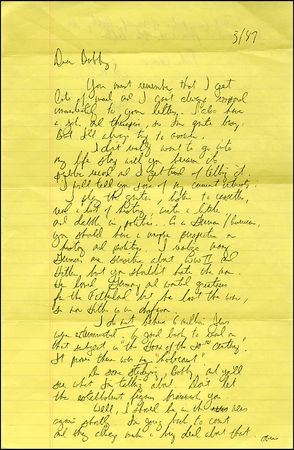 3/87
Dear Bobby,
You must remember that I get
lots of mail and I can't always respond
immediately to your letters. I also have
a job and so I'm quite busy.
But I'll always try to answer.
I don't really want to go into
my life story with you because it's
public record and I get tired of telling it.
I will tell you some of my current interests.
I play the guitar, listen to cassettes,
read a lot of history, write a little
and dabble in politics. As a German/American,
you should have a unique perspective on
history and politics. I realize many
Germans are sensitive about WW II and
Hitler but you shouldn't hate the man.
He loved Germany and wanted greatness
for the Fatherland but he lost the war,
so now Hitler is the
I do not believe 6 million Jews
were exterminated. A good book to read on
that subject is "The Hoax of the 20th Century".
It proves there was no "holocaust".
Do some studying, Bobby, and you'll
see what I'm talking about. Don't let
the establishment figures brainwash you.
Well, I should be in the news
again shortly. I'm going back to court
and they always make a big deal about that.
over